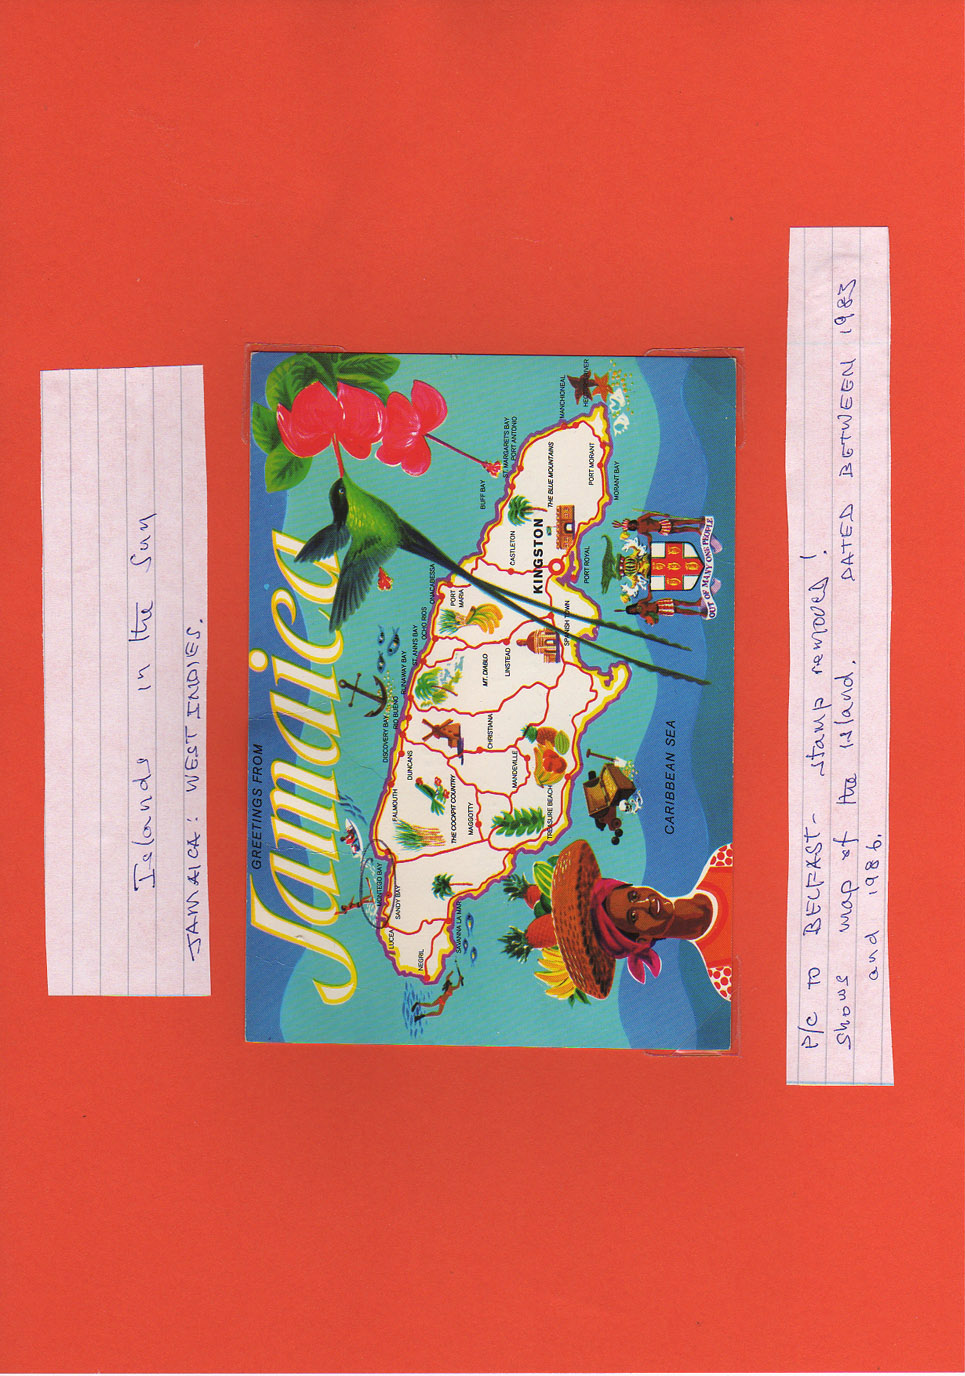 Islands in the Sun
JAMAICA: WEST INDIES.
GREETINGS FROM
Jamaica
DISCOVERY BAY
RIO BUENO
RUNAWAY BAY
ST ANN'S BAY
OCHO RIOS
ORACABESSA
PORT
MARIA
BUFF BAY
ST MARGARET'S BAY
PORT ANTONIO
MANCHIONEAL
LUCEA
MONTEGO BAY
SANDY BAY
FALMOUTH
DUNCANS
NEGRIL
SAVANNA LA MAR
THE COCKPIT COUNTRY
MAGGOTTY
CHRISTIANA
MANDEVILLE
TREASURE BEACH
MT. DIABLO
LINSTEAD
CASTLETON
KINGSTON
SPANISH TOWN
PORT ROYAL
THE BLUE MOUNTAINS
PORT MORANT
MORANT BAY
CARIBBEAN SEA
OUT OF MANY ONE PEOPLE
P/C TO BELFAST- stamp removed!
shows map of the island. DATED BETWEEN 1983
and 1986.